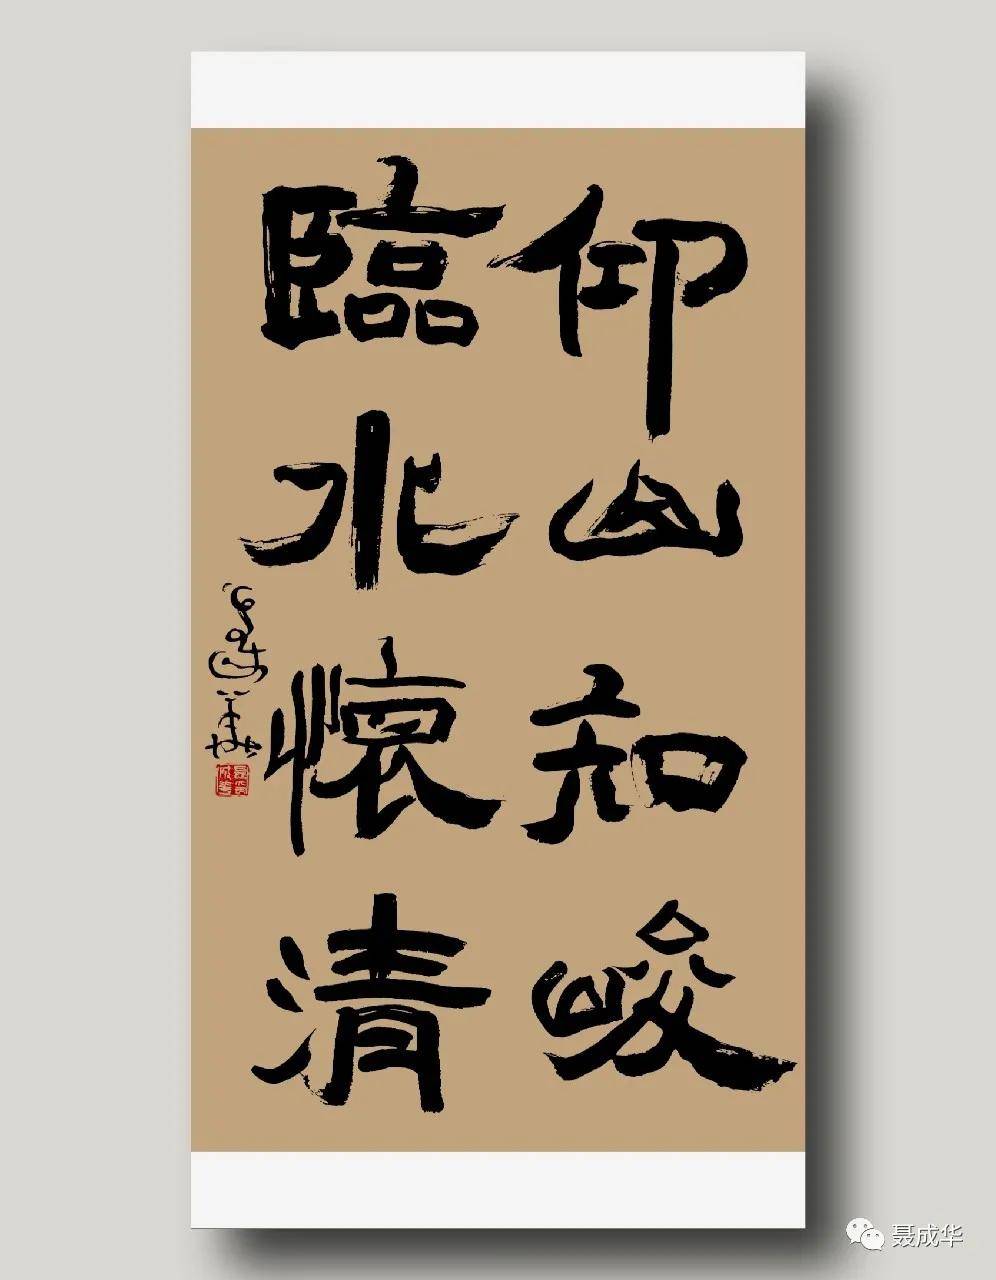 仰山知峻
臨水懷清
聂成华